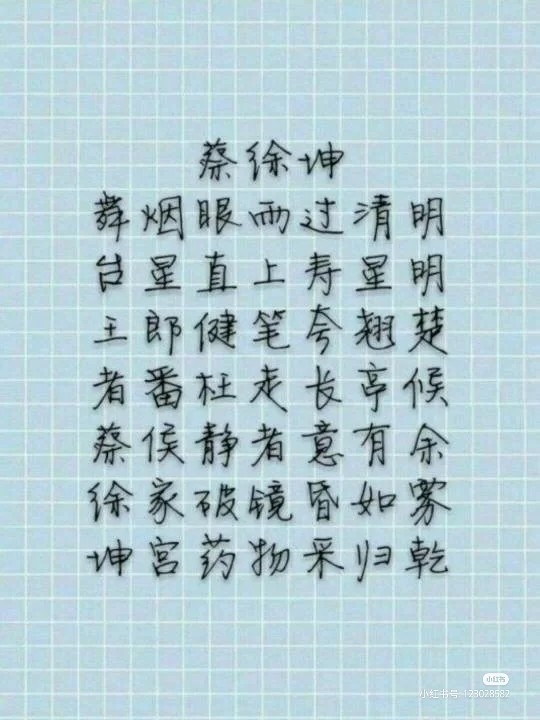 蔡徐坤
舞烟眼雨过清明
台星直上寿星明
王郎健笔夸翘楚
者番枉走长亭候
蔡侯静者意有余
徐家破镜昏如雾
坤宫药物采归乾
小红书
小红书号:123028582